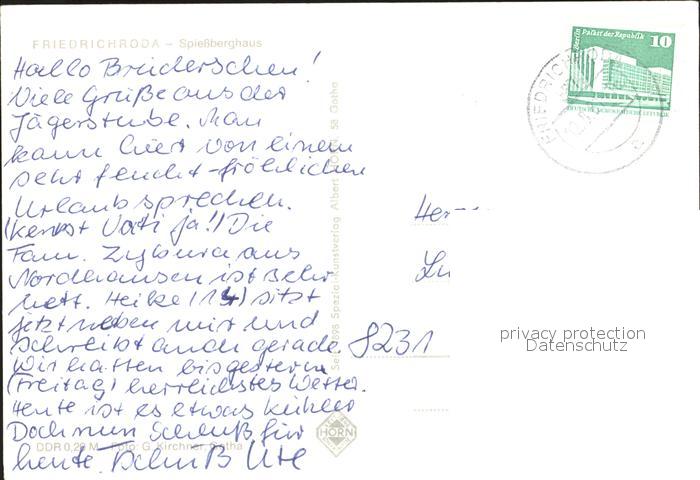 FRIEDRICHRODA – Spießberghaus
Hallo Brüderschen!
Viele Grüße aus der
Jägerstube. Man
kann hier von einem
sehr feucht-fröhlichen
Urlaub sprechen.
(kennst Vati ja!) Die
Fam. aus
Nordhausen ist sehr
nett. Heike (14) sitzt
jetzt neben mir und
schreibt auch gerade.
Wir hatten bis gestern
(Freitag) herrlichstes Wetter.
Heute ist es etwas kühler
Doch nun Schluß für
heute. Tschüß Ute
DDR 0,20 M Foto: G. Kirchner, Gotha
Spezial-Kunstverlag Albert Gotha
HORN
Berlin Palast der Republik 10
DEUTSCHE DEMOKRATISCHE REPUBLIK
FRIEDRICHRODA
Her
8231
privacy protection
Datenschutz